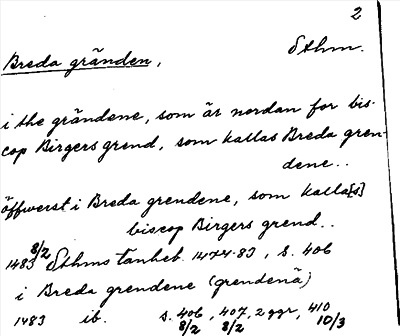 2
Breda gränden, Sthm.
i the grändene, som är nordan for bis-
cop Birgers grend, som kallas Breda gren-
dene..
öffwerst i Breda grendene, som kalla[s]
biscop Birgers grend..
1483 8/2 Sthms tänkeb. 1474-83, s. 406
i Breda grendene (grendenä)
1483 ib. s. 406, 407, 2 ggr, 410
8/2 8/2 10/3